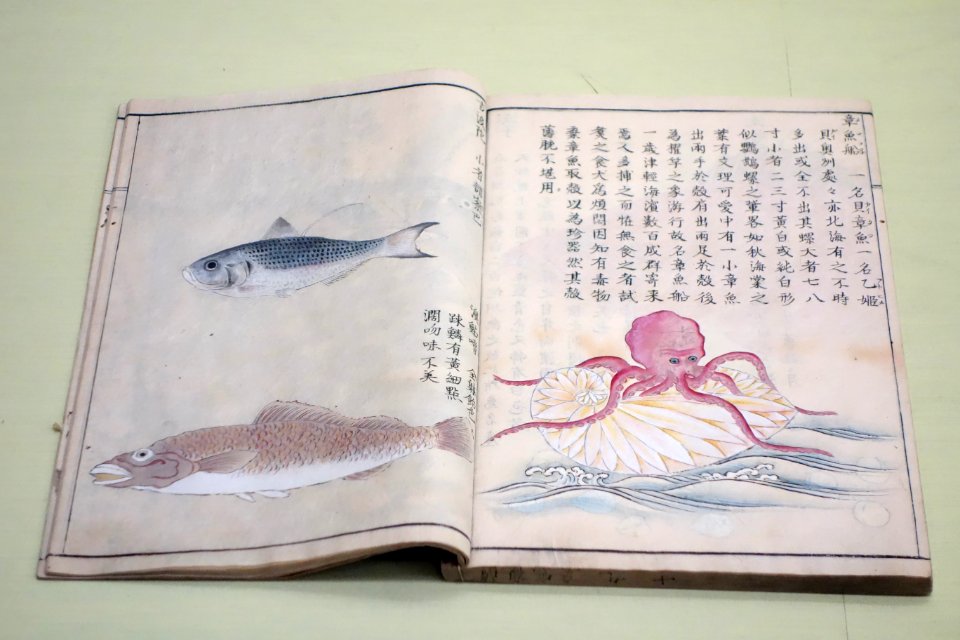 章魚船 一名貝章魚一名乙姫
貝奥州處々亦北海有之不時
多出或全不出其螺大者七八
寸小者二三寸黄白或純白形
似鸚鵡螺之薄畧如秋海棠之
葉有文理可愛中有一小章魚
出兩手於殻肩出兩足於殻後
為擢竿之象游行故名章魚船
一歳津輕海濱數百成群寄来
人多捕之而惟無食之者試
之食大為煩悶因知有毒物
棄章魚取殻以為珍器然其殻
薄脆不堪用
小者
疎鱗有黄細點
濶吻味不美